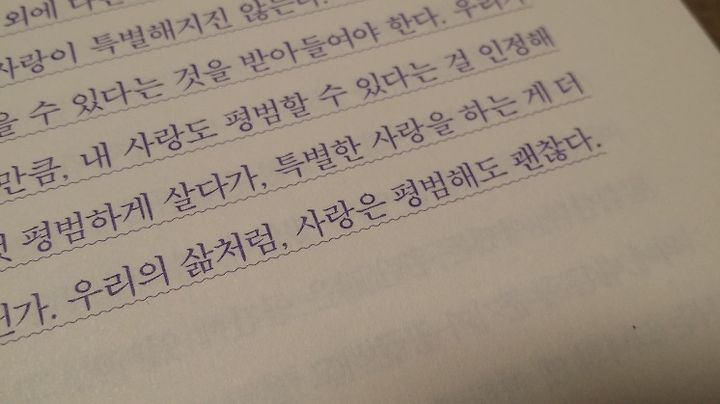 외에
사랑이 특별해지진 않는다.
수 있다는 것을 받아들여야 한다. 우리가
만큼, 내 사랑도 평범할 수 있다는 걸 인정해
평범하게 살다가, 특별한 사랑을 하는 게 더
우리의 삶처럼, 사랑은 평범해도 괜찮다.